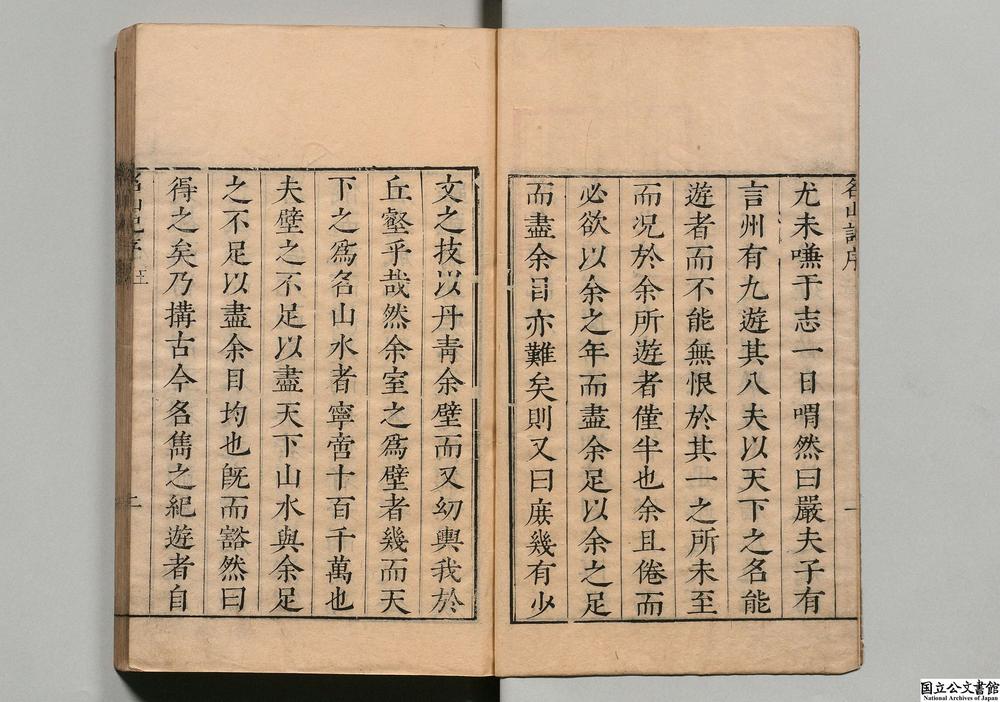 名山記序
尤未嗛于志一日喟然曰嚴夫子有
言州有九遊其八夫以天下之名能
遊者而不能無恨於其一之所未至
而况於余所遊者僅半也余且倦而
必欲以余之年而盡余足以余之足
而盡余目亦難矣則又曰庻幾有少
一
文之技以丹青余壁而又幼輿我於
丘壑乎哉然余室之爲壁者幾而天
下之爲名山水者寧啻十百千萬也
夫壁之不足以盡天下山水與余足
之不足以盡余目均也旣而豁然曰
得之矣乃搆古今名雋之紀遊者自
名山記序
二
国立公文書館
National Archives of Japan